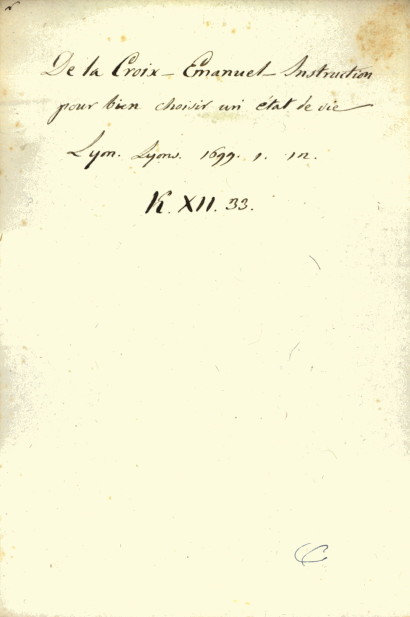 De la Croix - Emanuel - Instruction
pour bien choisir un état de vie
Lyon. Lyons. 1699. 1. 12.
K. XII. 33.